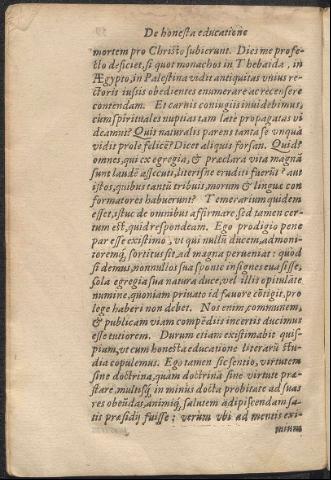 De honesta educatione
mortem pro Christo subierunt. Dies me profe-
cto deficiet, si quot monachos in Thebaida, in
Ægypto, in Palestina vidit antiquitas vnius re-
ctoris iussis obedientes enumerare ac recensere
contendam. Et carnis coniugiis inuidebimus,
cum spirituales nuptias tam latè propagatas vi
deamus? Quis naturalis parens tanta se vnquã
vidit prole felicẽ? Dicet aliquis forsan. Quid?
omnes, qui ex egregia, & præclara vita magnã
sunt laudẽ assecuti, literisne eruditi fuerũt? aut
istos, quibus tantũ tribuis, morum & linguæ con
formatores habuerunt? Temerarium quidem
esset, istuc de omnibus affirmare, sed tamen cer-
tum est, quid respondeam. Ego prodigio pene
par esse existimo, vt qui nullũ ducem, admoni-
toremq́, sortitus sit, ad magna perueniat: quod
si demus, nonnullos sua sponte insignes euasisse,
sola egregia sua natura duce, vel illis opitulãte
numine, quoniam priuato id fauore cõtigit, pro
lege haberi non debet. Nos enim, communem,
& publicam viam compẽdiis incertis ducimus
esse tutiorem. Durum etiam existimabit quis-
piam, vt cum honesta educatione literarũ stu-
dia copulemus. Ego tamen sic sentio, virtutem
sine doctrina, quàm doctrinã sine virtute præ-
stare, multisq́, in minus docta probitate ad suas
res obeũdas, animiq́, salutem adipiscendam sa-
tis præsidij fuisse: verùm vbi ad mentis exi-